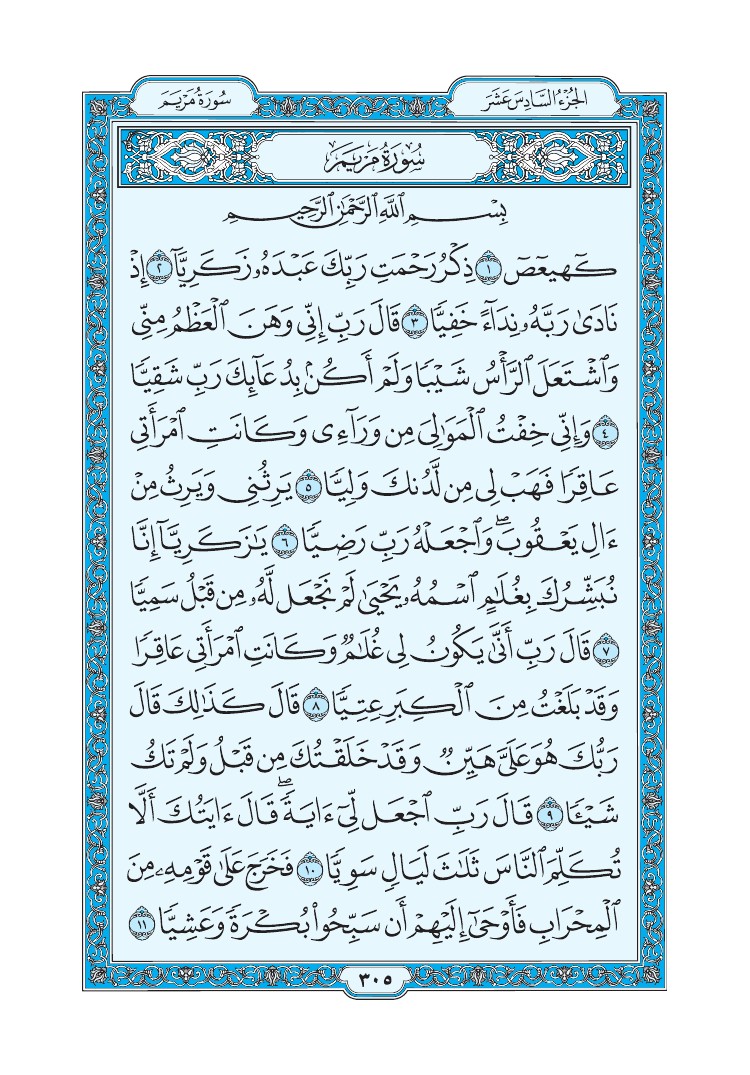 الجزء السادس عشر
سورة مريم
سُورَةُ مَرۡيَمَ
بِسۡمِ ٱللَّهِ ٱلرَّحۡمَٰنِ ٱلرَّحِيمِ
كٓهيعٓصٓ ١ ذِكۡرُ رَحۡمَتِ رَبِّكَ عَبۡدَهُۥ زَكَرِيَّآ ٢ إِذۡ
نَادَىٰ رَبَّهُۥ نِدَآءً خَفِيّٗا ٣ قَالَ رَبِّ إِنِّي وَهَنَ ٱلۡعَظۡمُ مِنِّي
وَٱشۡتَعَلَ ٱلرَّأۡسُ شَيۡبٗا وَلَمۡ أَكُنۢ بِدُعَآئِكَ رَبِّ شَقِيّٗا
٤ وَإِنِّي خِفۡتُ ٱلۡمَوَٰلِيَ مِن وَرَآءِي وَكَانَتِ ٱمۡرَأَتِي
عَاقِرٗا فَهَبۡ لِي مِن لَّدُنكَ وَلِيّٗا ٥ يَرِثُنِي وَيَرِثُ مِنۡ
ءَالِ يَعۡقُوبَۖ وَٱجۡعَلۡهُ رَبِّ رَضِيّٗا ٦ يَٰزَكَرِيَّآ إِنَّا
نُبَشِّرُكَ بِغُلَٰمٍ ٱسۡمُهُۥ يَحۡيَىٰ لَمۡ نَجۡعَل لَّهُۥ مِن قَبۡلُ سَمِيّٗا
٧ قَالَ رَبِّ أَنَّىٰ يَكُونُ لِي غُلَٰمٞ وَكَانَتِ ٱمۡرَأَتِي عَاقِرٗا
وَقَدۡ بَلَغۡتُ مِنَ ٱلۡكِبَرِ عِتِيّٗا ٨ قَالَ كَذَٰلِكَ قَالَ
رَبُّكَ هُوَ عَلَيَّ هَيِّنٞ وَقَدۡ خَلَقۡتُكَ مِن قَبۡلُ وَلَمۡ تَكُ
شَيۡـٔٗا ٩ قَالَ رَبِّ ٱجۡعَل لِّيٓ ءَايَةٗۖ قَالَ ءَايَتُكَ أَلَّا
تُكَلِّمَ ٱلنَّاسَ ثَلَٰثَ لَيَالٖ سَوِيّٗا ١٠ فَخَرَجَ عَلَىٰ قَوۡمِهِۦ مِنَ
ٱلۡمِحۡرَابِ فَأَوۡحَىٰٓ إِلَيۡهِمۡ أَن سَبِّحُواْ بُكۡرَةٗ وَعَشِيّٗا ١١
٣٠٥